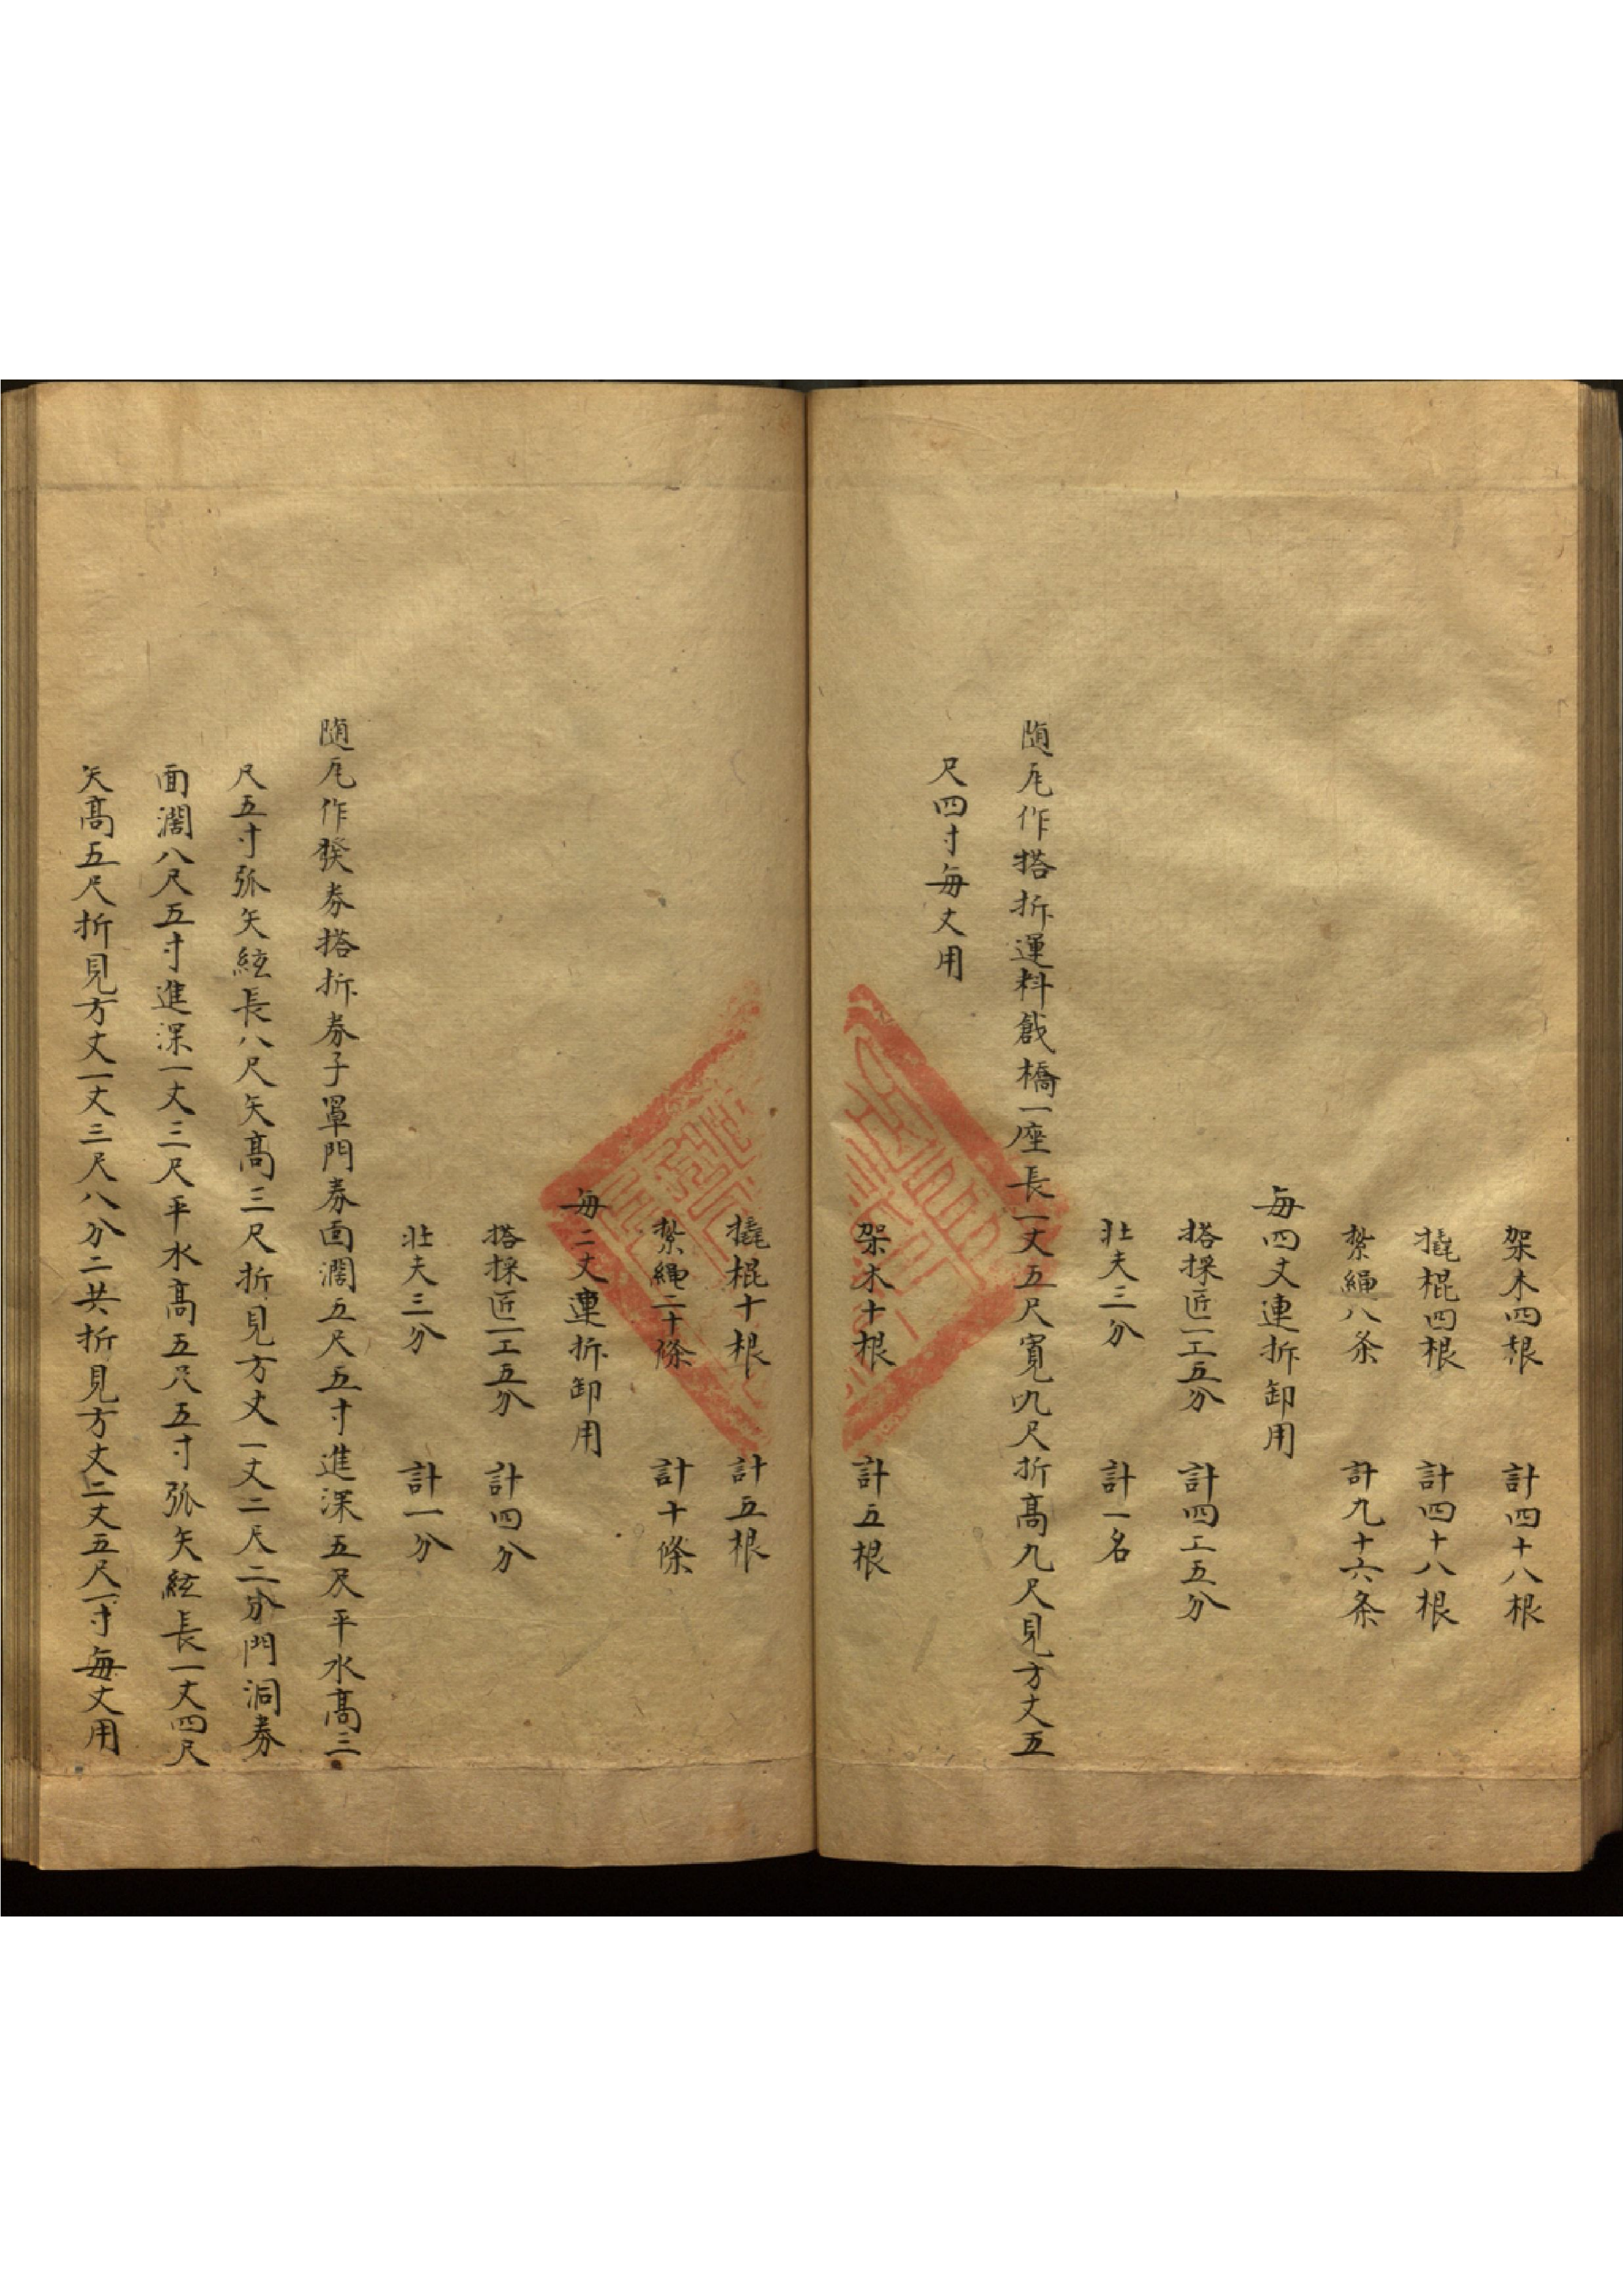 架木四根　計四十八根
撬棍四根　計四十八根
紮繩八条　計九十六条
每四丈連拆卸用
搭採匠一工五分　計四工五分
壯夫三分　計一名
随瓦作搭拆運料戧橋一座長一丈五尺寬九尺折高九尺見方丈五
尺四寸每丈用
架木十根　計五根
撬棍十根　計五根
紮繩二十條　計十條
每二丈連拆卸用
搭採匠一工五分　計四分
壯夫三分　計一分
随瓦作發券搭拆券子罩門券面濶五尺五寸進深五尺平水高三
尺五寸弧矢絃長八尺矢高三尺折見方丈一丈二尺二分門洞券
面濶八尺五寸進深一丈三尺平水高五尺五寸弧矢絃長一丈四尺
矢高五尺折見方丈一丈三尺八分二共折見方丈二丈五尺一寸每丈用